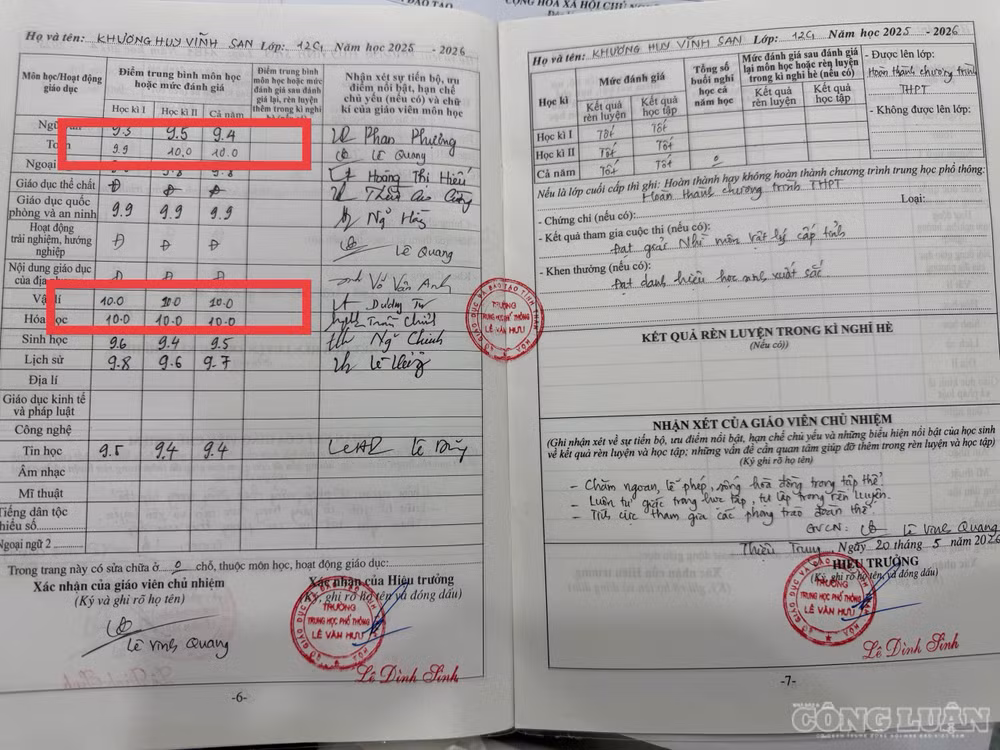 CỘNG HÒA XÃ HỘI CHỦ
Họ và tên: KHƯƠNG HUY VĨNH SAN Lớp: 12C1 Năm học 2025 - 2026
Môn học/Hoạt động giáo dục
Điểm trung bình môn học hoặc mức đánh giá
Học kì I Học kì II Cả năm
Điểm trung bình môn học hoặc mức đánh giá sau đánh giá lại, rèn luyện thêm trong kì nghỉ
Nhận xét sự tiến bộ, ưu điểm nổi bật, hạn chế chủ yếu (nếu có) và chữ kí của giáo viên môn học
9.3 9.5 9.4 Phan Phương
Toán 9.9 10.0 10.0 Lê Quang
Ngoại 9.8 9.8 Hoàng Thị Hiếu
Giáo dục thể chất Đ Đ Đ
Giáo dục quốc phòng và an ninh 9.9 9.9 9.9
Hoạt động trải nghiệm, hướng nghiệp Đ Đ Đ Lê Quang
Nội dung giáo dục của địa Đ Đ Đ Vũ Vân Anh
Vật lí 10.0 10.0 10.0 Dương Tư
Hóa học 10.0 10.0 10.0
Sinh học 9.6 9.4 9.5 Ng Chinh
Lịch sử 9.8 9.6 9.7
Địa lí
Giáo dục kinh tế và pháp luật
Công nghệ
Tin học 9.5 9.4 9.4 Lê Dũng
Âm nhạc
Mĩ thuật
Tiếng dân tộc thiểu số
Ngoại ngữ 2
Trong trang này có sửa chữa ở 0 chỗ, thuộc môn học, hoạt động giáo dục:
Xác nhận của giáo viên chủ nhiệm
(Ký và ghi rõ họ tên)
Lê Vinh Quang
Xác nhận của Hiệu trưởng
(Ký, ghi rõ họ tên và đóng dấu)
TRƯỜNG
TRUNG HỌC PHỔ THÔNG
LÊ VĂN HƯU
Lê Đình Sinh
-6-
Họ và tên: KHƯƠNG HUY VĨNH SAN Lớp: 12C1 Năm học 2025 - 2026
Học kì
Mức đánh giá
Kết quả rèn luyện Kết quả học tập
Tổng số buổi nghỉ học cả năm học
Mức đánh giá sau đánh giá lại môn học hoặc rèn luyện trong kì nghỉ hè (nếu có)
Kết quả rèn luyện Kết quả học tập
- Được lên lớp:
Hoàn thành chương trình
THPT
- Không được lên lớp:
Học kì I Tốt Tốt
Học kì II Tốt Tốt
Cả năm Tốt Tốt 0
Nếu là lớp cuối cấp thì ghi: Hoàn thành hay không hoàn thành chương trình trung học phổ thông:
Hoàn thành chương trình THPT
- Chứng chỉ (nếu có): Loại:
- Kết quả tham gia cuộc thi (nếu có):
Đạt giải Nhì môn vật lý cấp tỉnh
- Khen thưởng (nếu có):
Đạt danh hiệu học sinh xuất sắc
TRƯỜNG
TRUNG HỌC PHỔ THÔNG
LÊ VĂN HƯU
KẾT QUẢ RÈN LUYỆN TRONG KÌ NGHỈ HÈ
(Nếu có))
NHẬN XÉT CỦA GIÁO VIÊN CHỦ NHIỆM
(Ghi nhận xét về sự tiến bộ, ưu điểm nổi bật, hạn chế chủ yếu và những biểu hiện nổi bật của học sinh
về kết quả rèn luyện và học tập; những vấn đề cần quan tâm giúp đỡ thêm trong rèn luyện và học tập)
(Ký ghi rõ họ tên)
- Chăm ngoan, lễ phép, sống hòa đồng trong tập thể.
- Luôn tự giác trong học tập, tự lập trong rèn luyện.
- Tích cực tham gia các phong trào đoàn thể.
GVCN: Lê Vinh Quang
Thiệu Trung Ngày 20 tháng 5 năm 2026
HIỆU TRƯỞNG
(Ký, ghi rõ họ tên và đóng dấu)
TRƯỜNG
TRUNG HỌC PHỔ THÔNG
LÊ VĂN HƯU
Lê Đình Sinh
-7-
CÔNG LUẬN